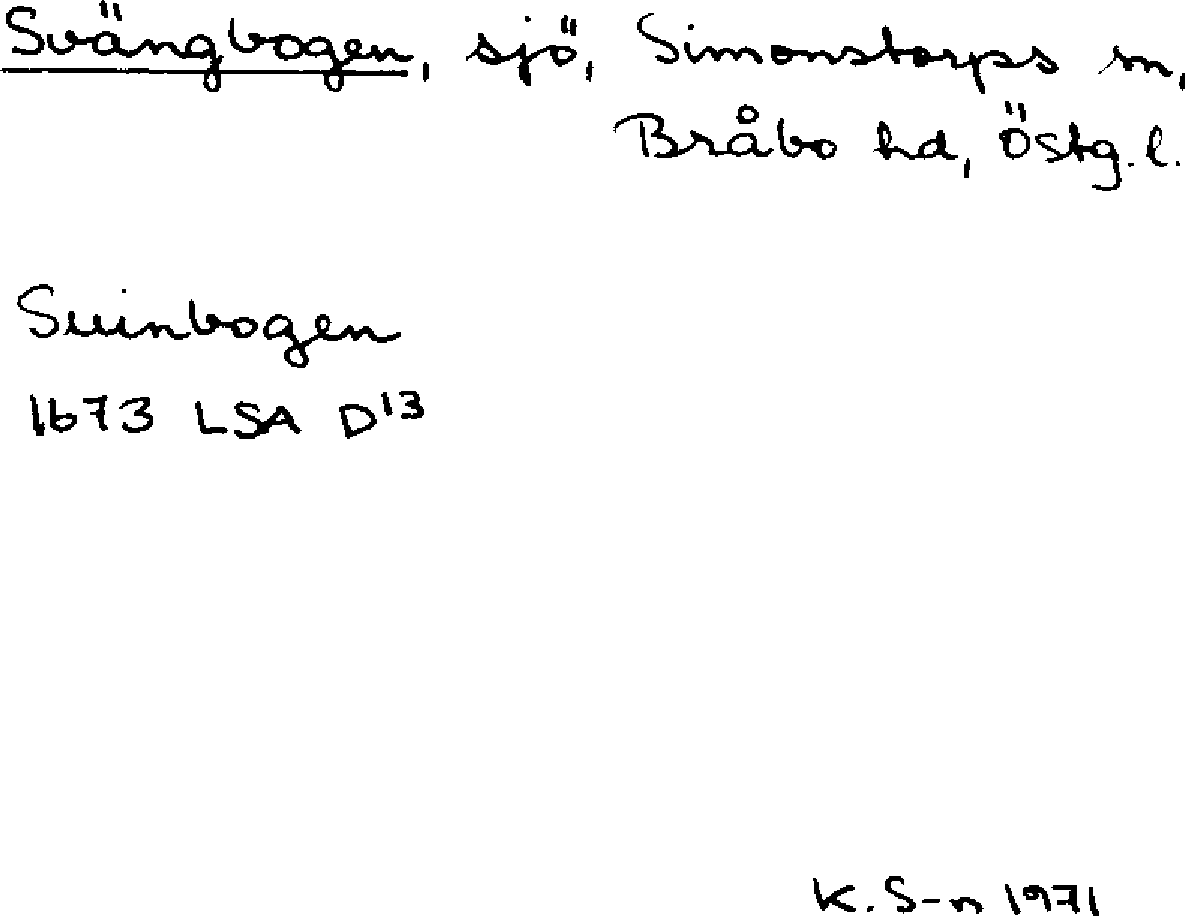 Svängbogen, sjö, Simonstorps sn,
Bråbo hd, Östg. l.
Suinbogen
1673 LSA D13
K. S-n 1971